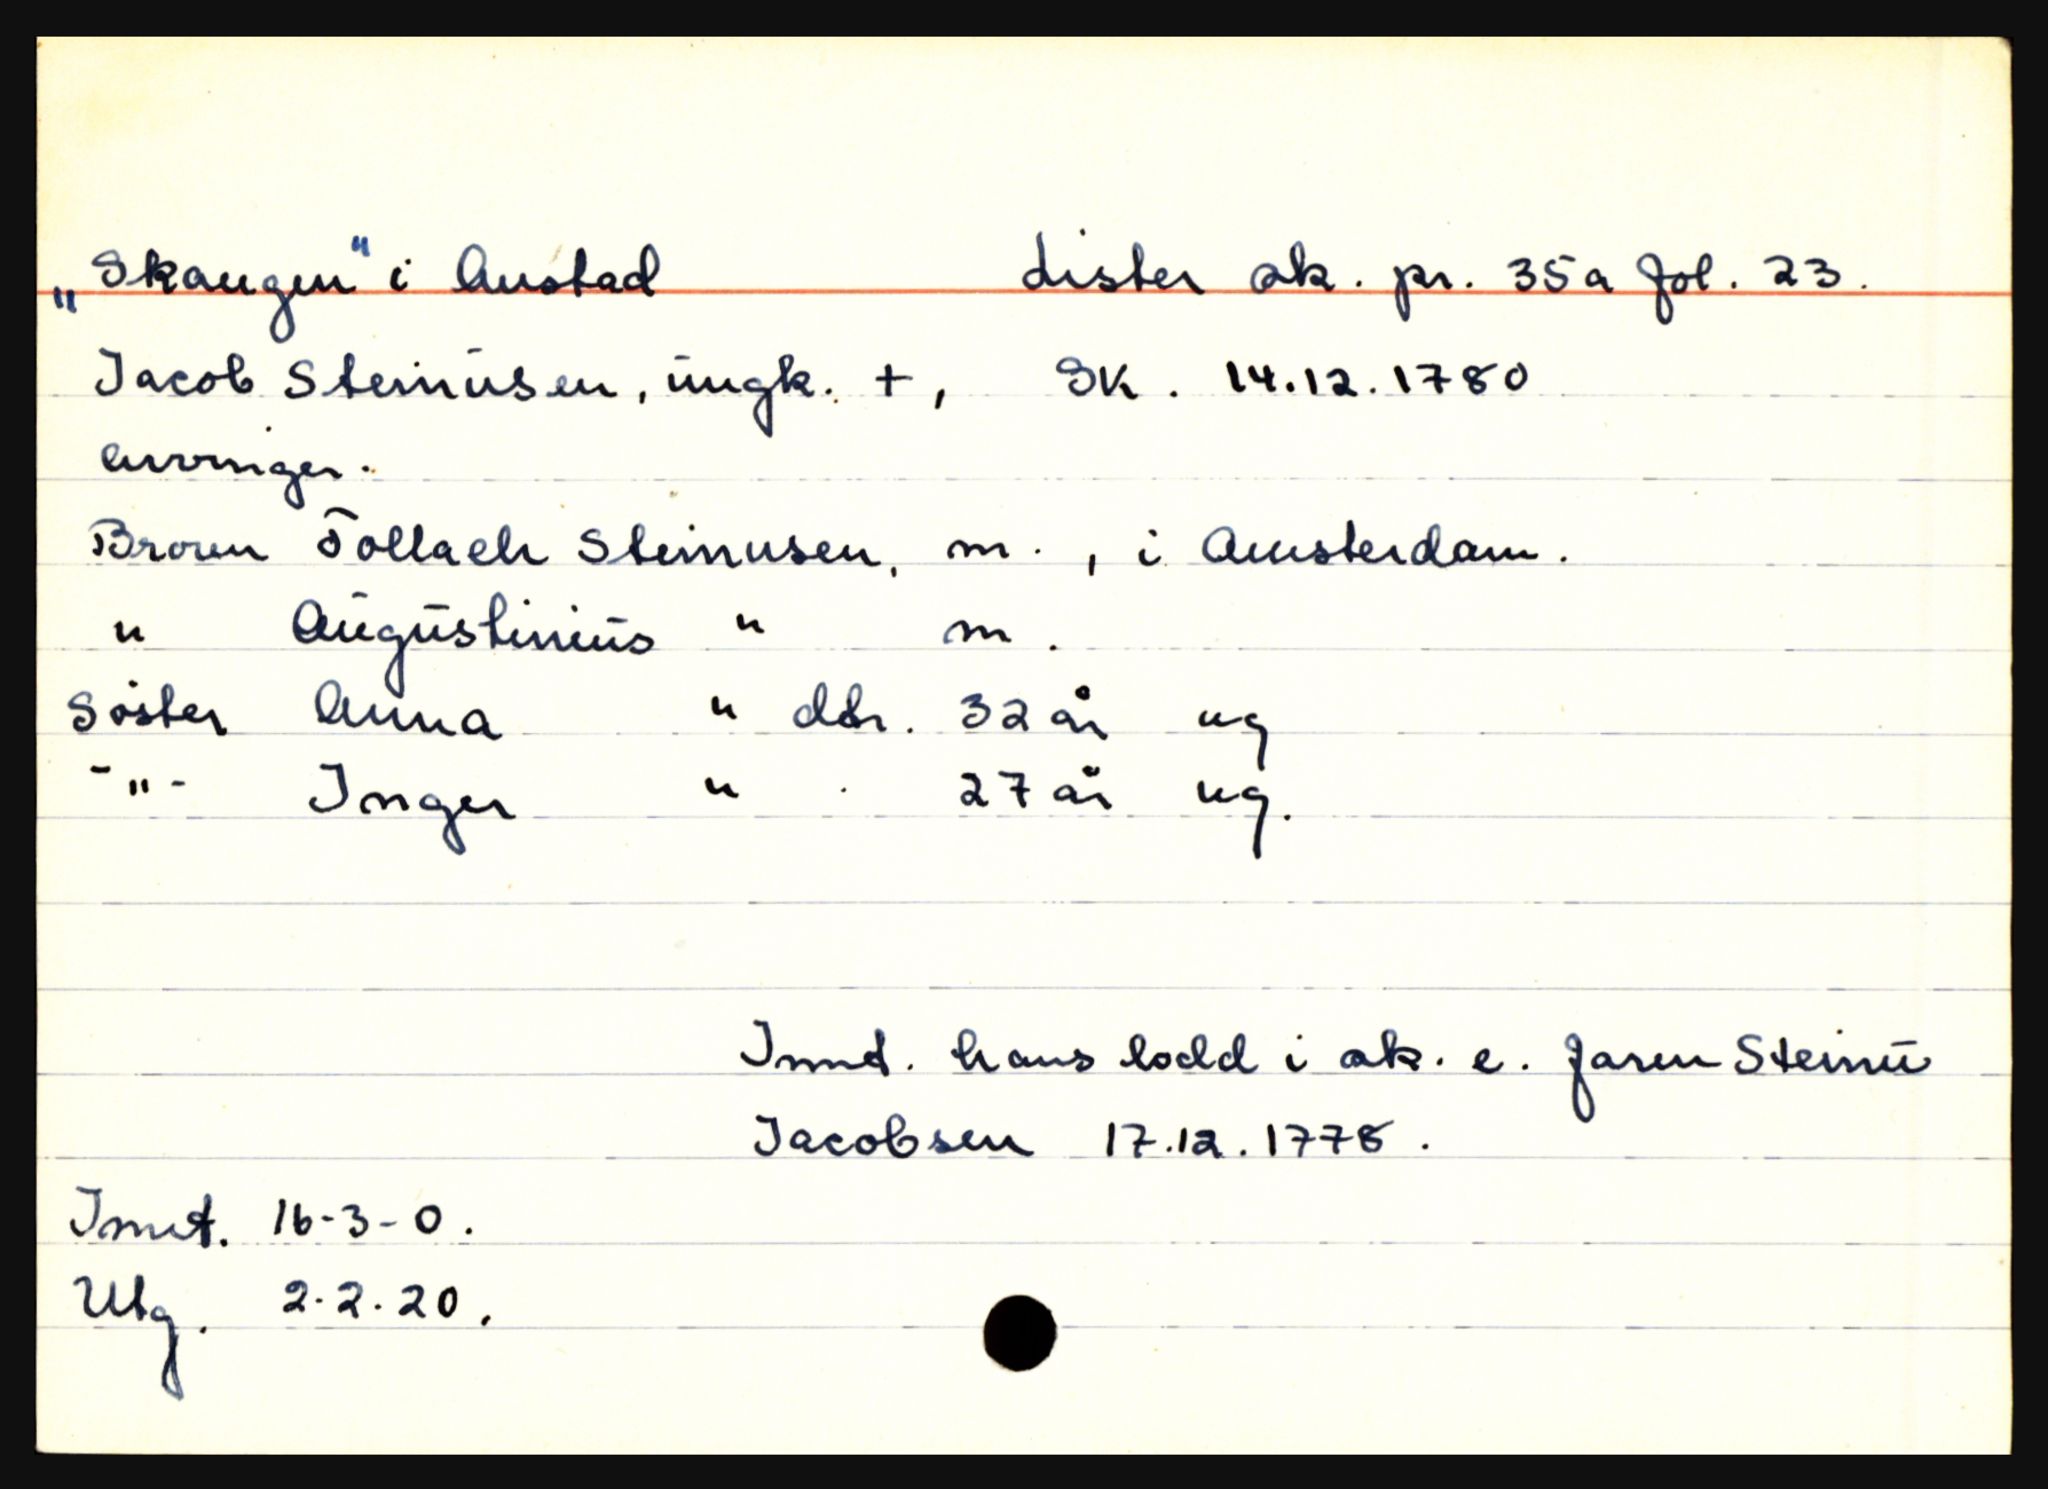 „Skaugen" i Austad Lister sk. pr. 35a fol. 23.
Jacob Steinūsen, ūngk. +, SK. 14.12.1780
arvinger.
Broren Tollach Steinusen, m., i Amsterdam.
" Aūgūstinius " m.
Søster Anna " dtr. 32 år ug
-"- Inger " . 27 år ug.
Innt. hans lodd i sk. e. faren Steinū
Jacobsen 17.12.1778.
Innt. 16-3-0.
Utg. 2.2.20.